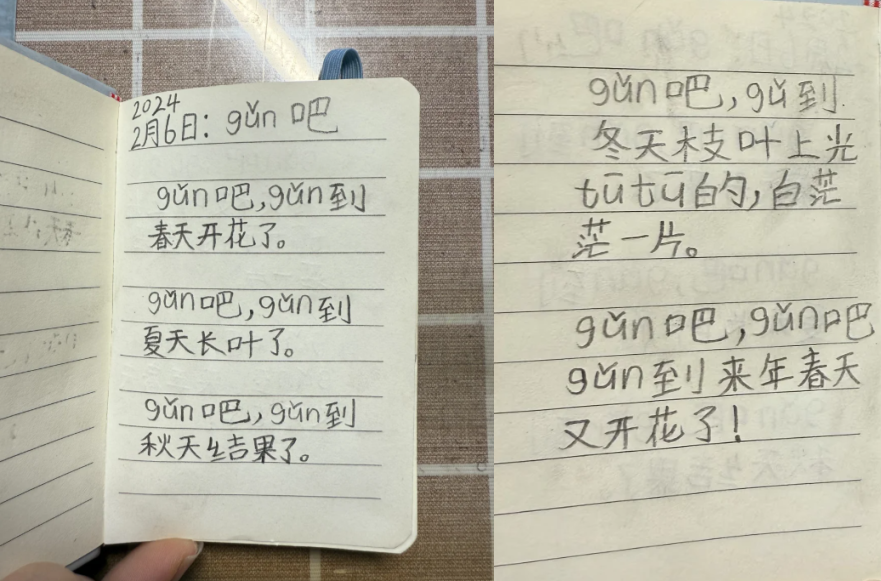 2024
2月6日：gǔn 吧
gǔn吧，gǔn到
春天开花了。
gǔn吧，gǔn到
夏天长叶了。
gǔn吧，gǔn到
秋天结果了。
gǔn吧，gǔ到
冬天枝叶上光
tūtū的，白茫
茫一片。
gǔn吧，gǔn吧
gǔn到来年春天
又开花了！